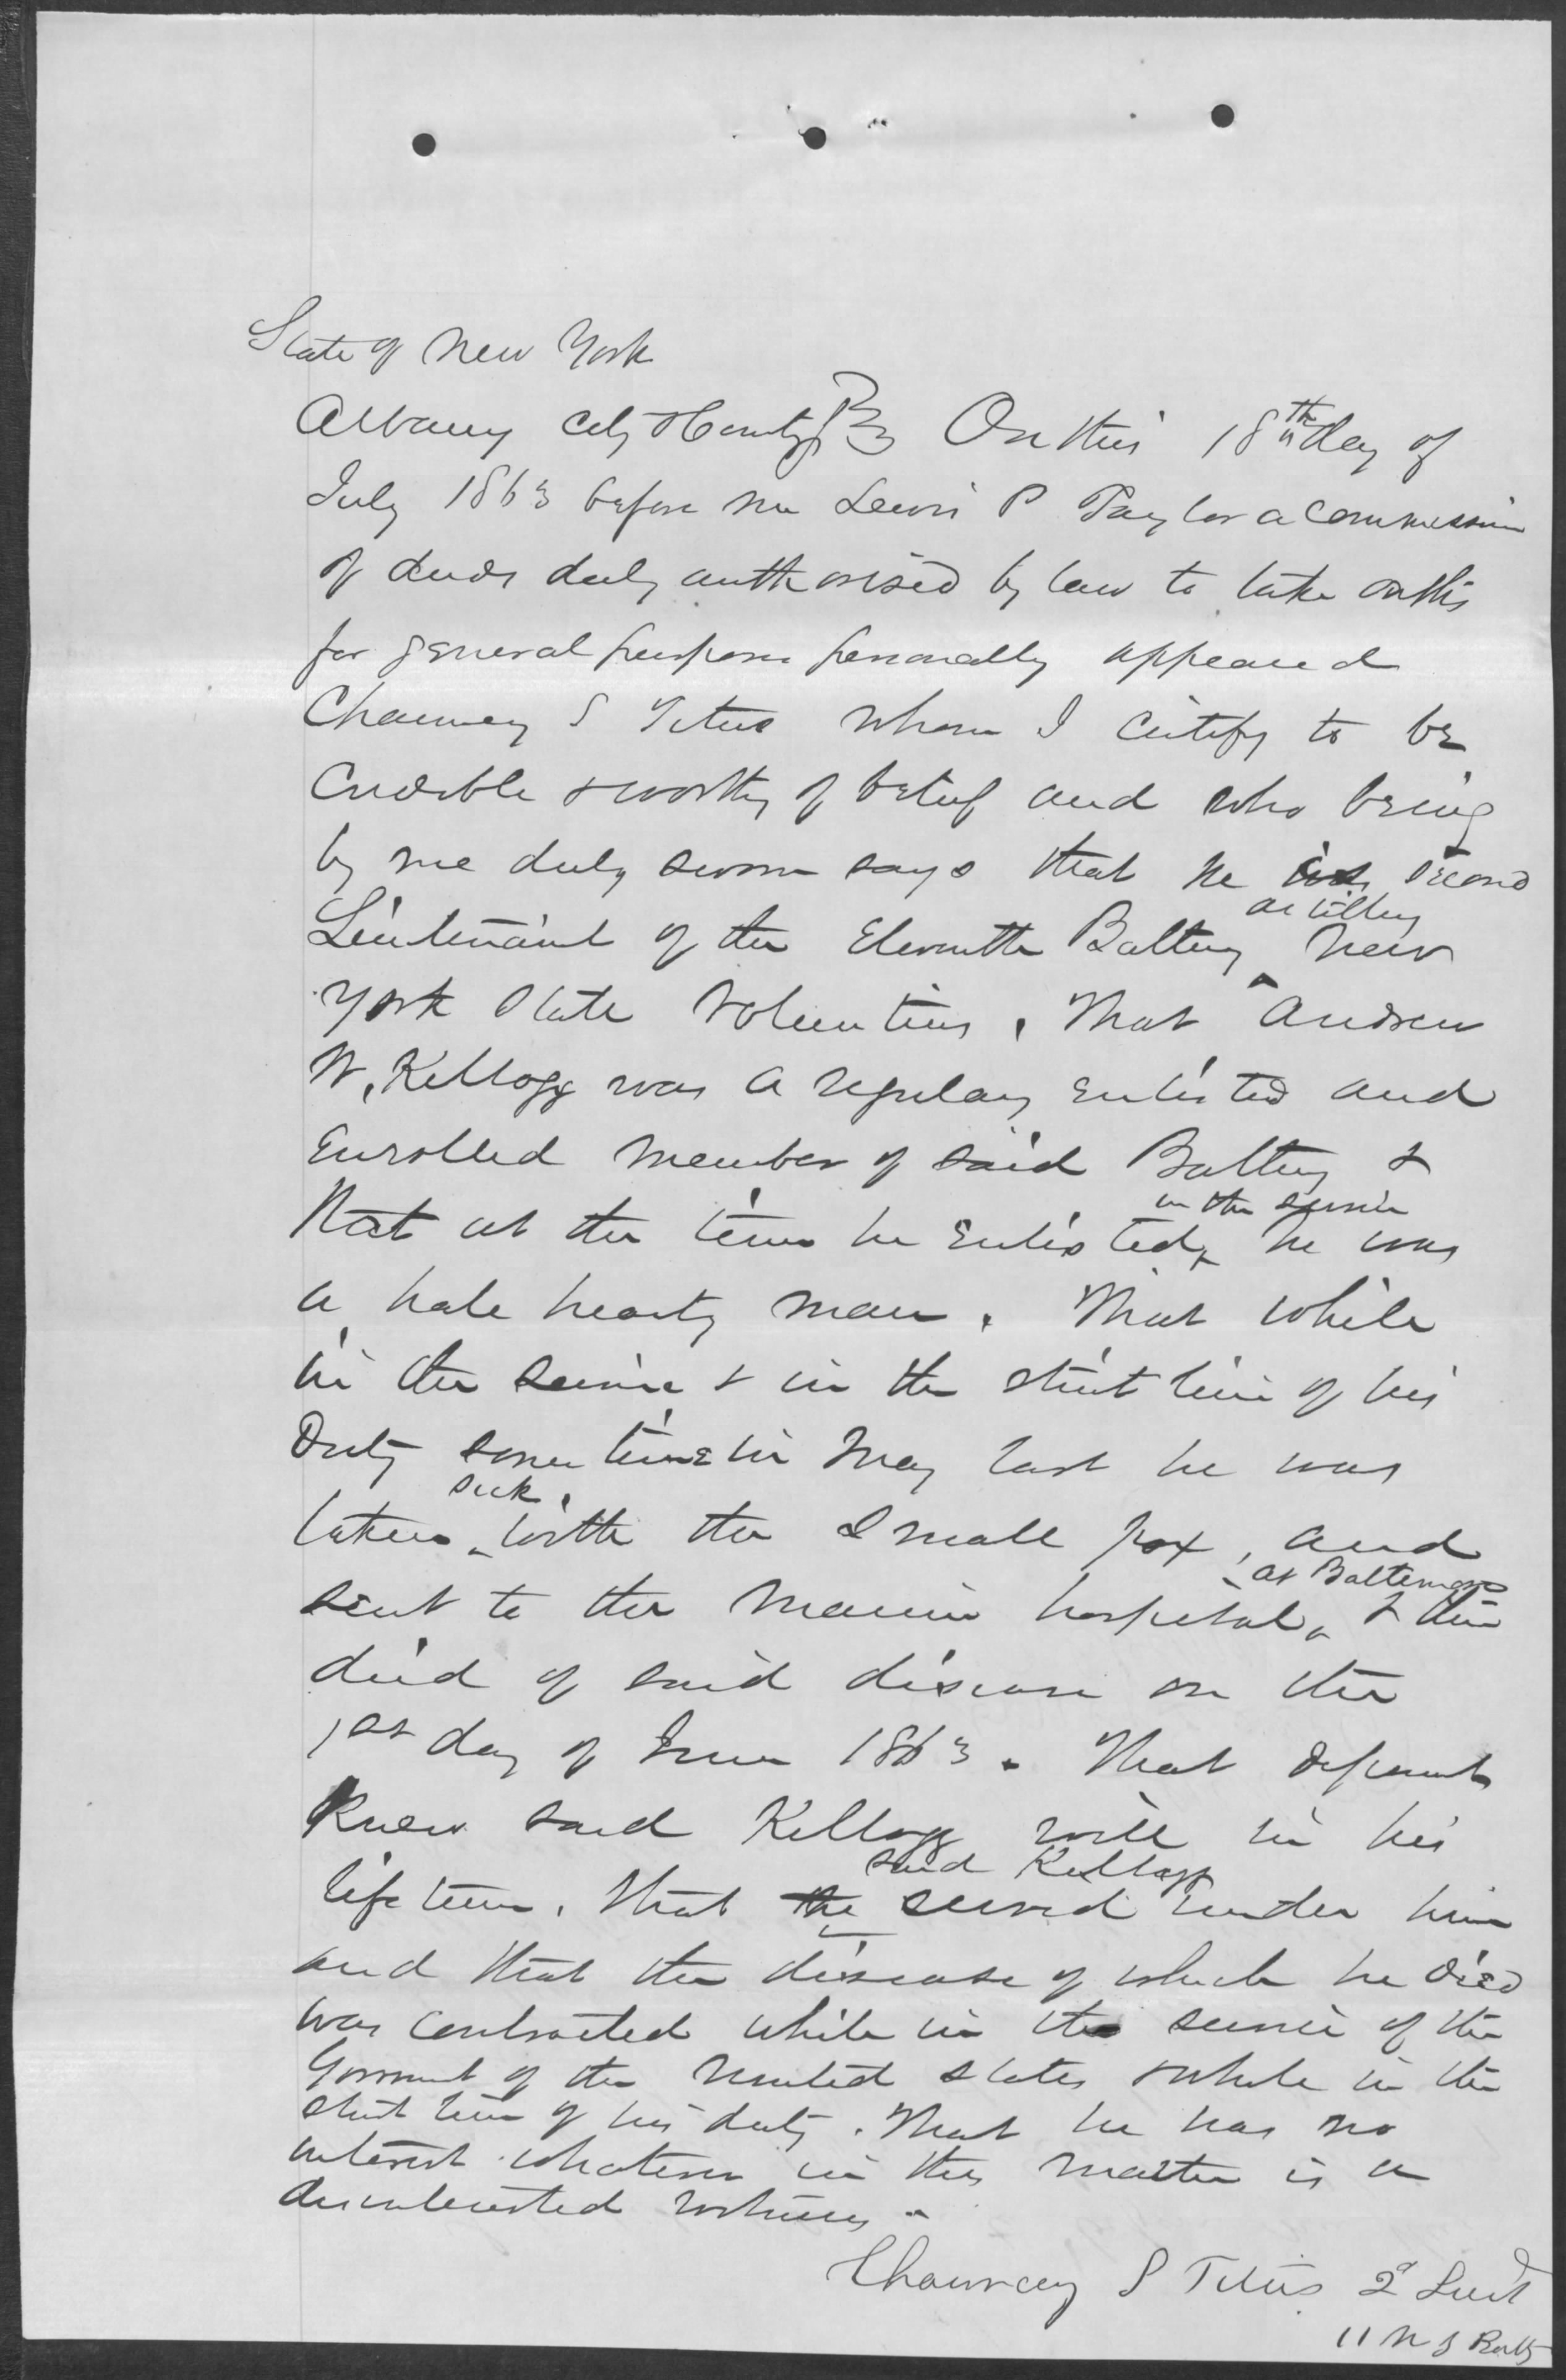 State of New York
Albany City & County } ss On this 18th day of
July 1863 before me Lewis P Taylor a Commissioner
of deeds duly authorised by law to take oaths
for general purposes personally appeared
Chauncey S Titus whom I certify to be
Credible & worthy of belief and who being
by me duly sworn says that he is second
Lieutenant of the Eleventh Battery artillery New
York State Volunteers. That Andrew
W. Kellogg was a regular enlisted and
Enrolled member of said Battery &
that at the time he Enlisted in the service he was
a hale hearty man. That while
in the service & in the strict line of his
Duty some time in May last he was
taken sick with the Small pox, and
sent to the Marine hospital at Baltemore & there
died of said disease on the
1st day of June 1863. That deponent
Knew said Kellogg well in his
life time. that the said Kellogg served under him
and that the disease of which he died
was contracted while in the service of the
Goverment of the United States & while in the
strict line of his duty. That he has no
interest whatever in this matter is a
disinterested witness.
Chauncey S Titus 2d Lieut
11 N Y Batty